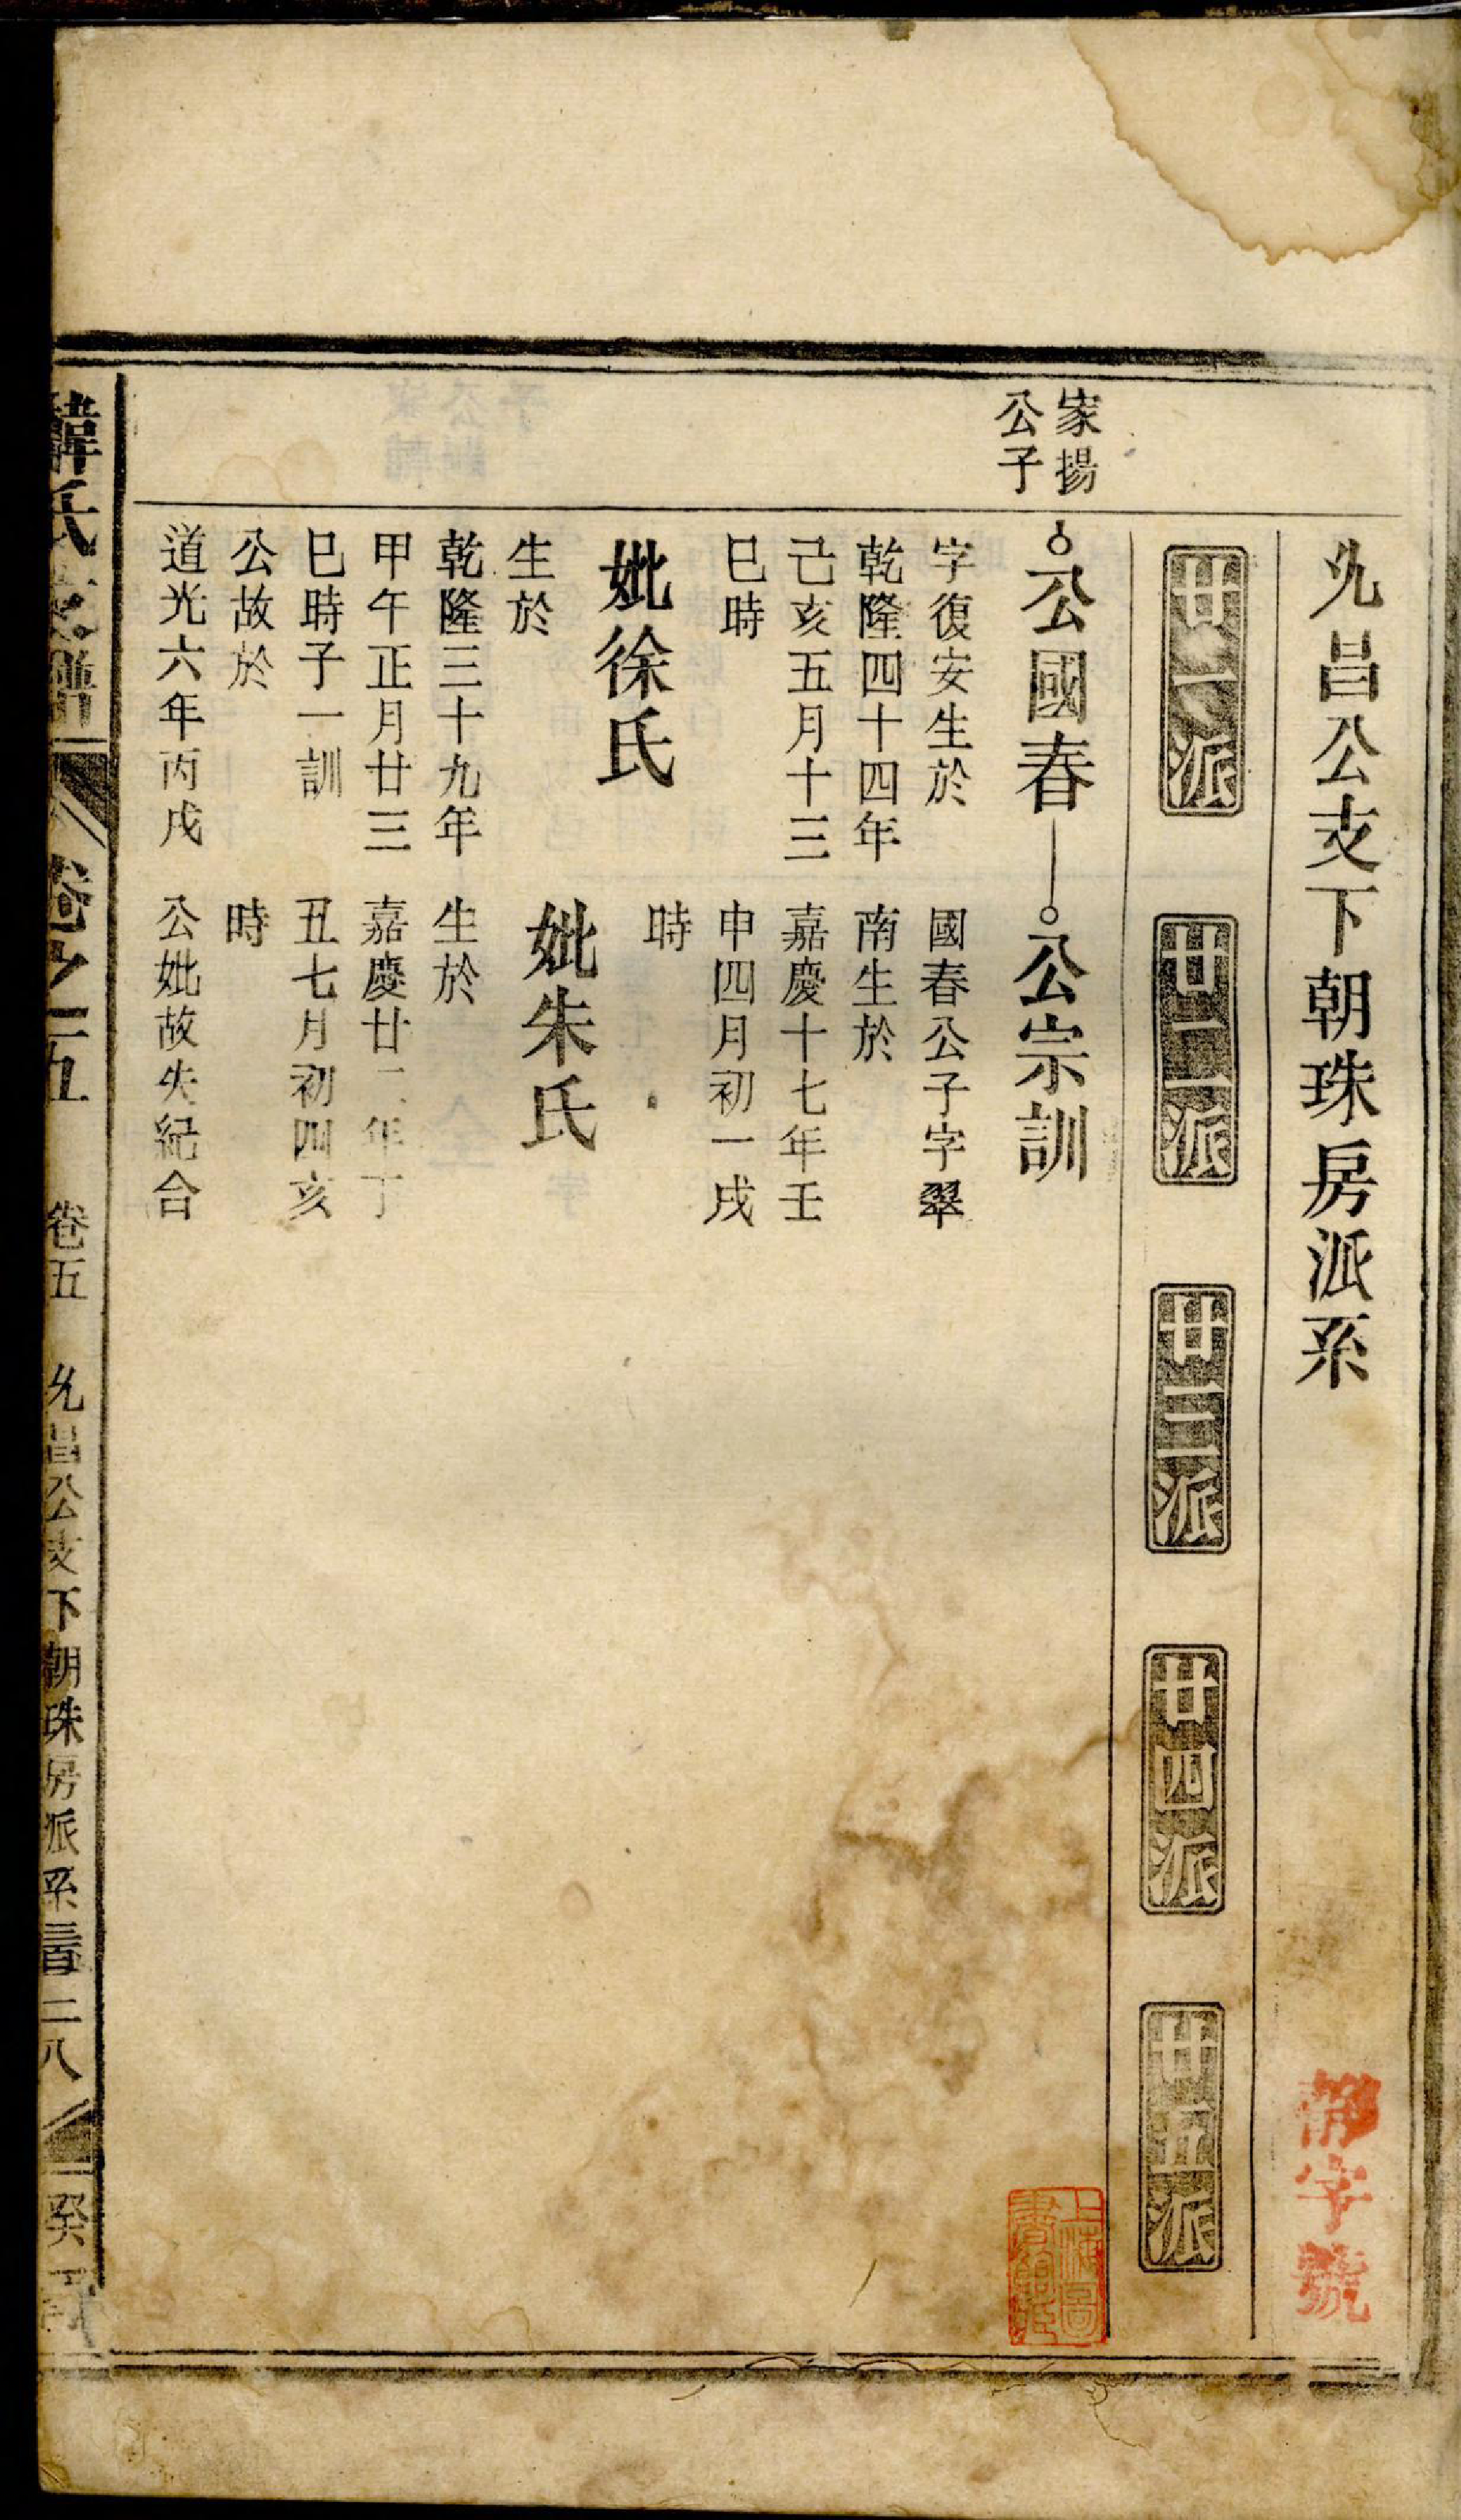 允昌公支下朝珠房派系
靜字號
廿一派
廿二派
廿三派
廿四派
廿五派
家揚
公子
公國春
字復安生於
乾隆四十四年
己亥五月十三
巳時
妣徐氏
生於
乾隆三十九年
甲午正月廿三
巳時子一訓
公故於
道光六年丙戌
公宗訓
國春公子字翠
南生於
嘉慶十七年壬
申四月初一戌
時
妣朱氏
生於
嘉慶廿二年丁
丑七月初四亥
時
公妣故失紀合
韓氏家譜
卷之五
卷五
允昌公支下朝珠房派系
二八
上海圖
書館藏